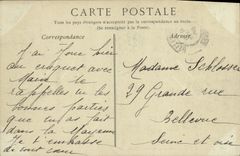 CARTE POSTALE
Tous les pays étrangers n'acceptent pas la correspondance au recto
(Se renseigner à la Poste)
Correspondance
Adresse
J'ai joué hier
au croquet avec
te
rappelles tu les
bonnes parties
que tu as fait
dans la Mayenne
Je t'embrasse
de tout cœur
Madame Schlosser
29 Grande rue
Bellevue
Seine et Oise